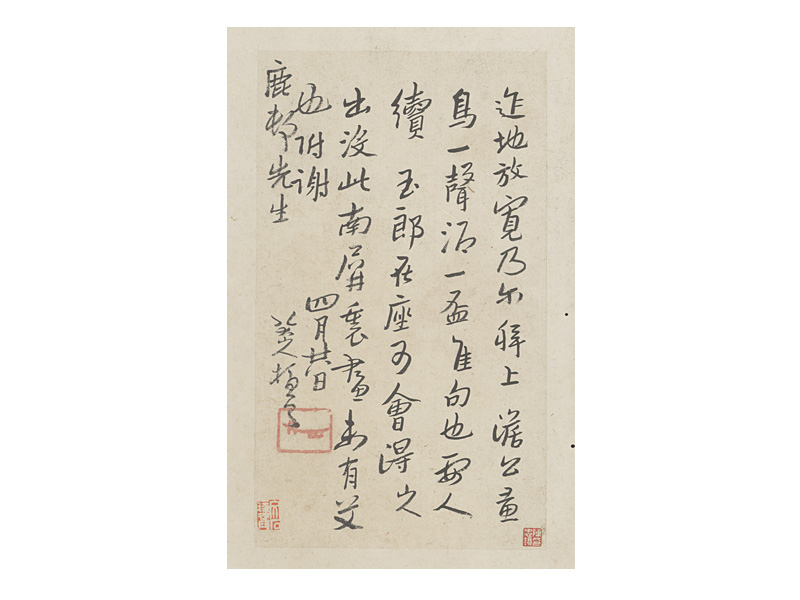 迮地放寬乃尔 稱上 澹公畫
鳥一聲 一盃隹句也要人
續 玉郎在座可會得之
出沒此南屏裏畫未有艾
也附謝
鹿邨先生
四月 日
八大山人頓首